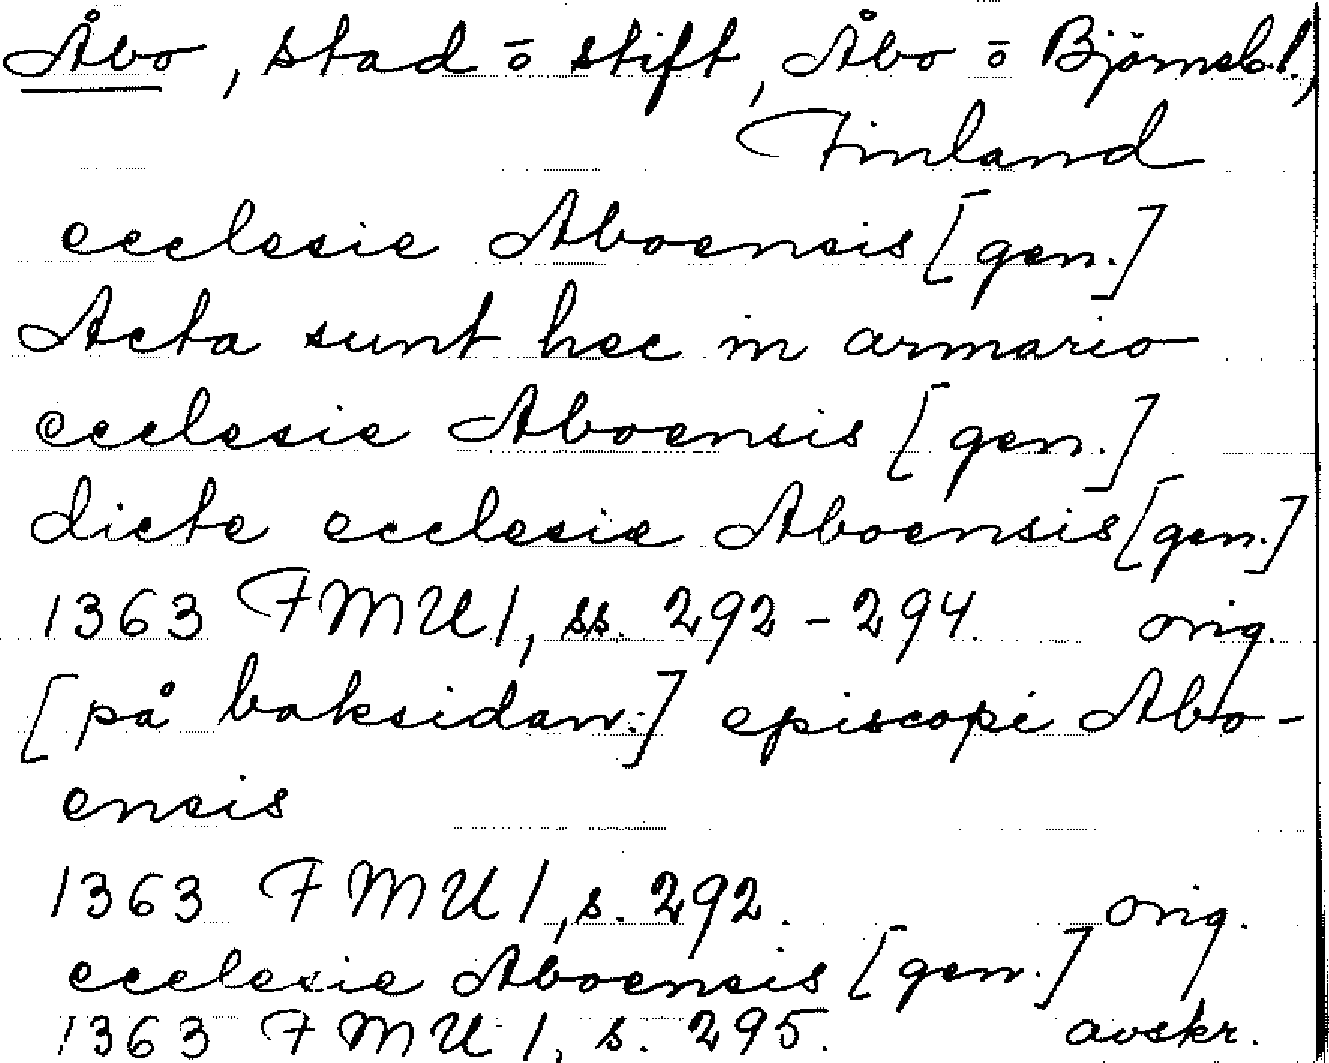 Åbo, stad ō stift, Åbo ō Björneb.l.,
Finland
ecclesie Aboensis [gen.]
Acta sunt hec in armario
ecclesie Aboensis [gen.]
dicte ecclesie Aboensis [gen.]
1363 FMU 1, ss. 292-294. orig.
[på baksidan:] episcopi Abo-
ensis
1363 FMU 1, s. 292. orig.
ecclesie Aboensis [gen.]
1363 FMU 1, s. 295. avskr.